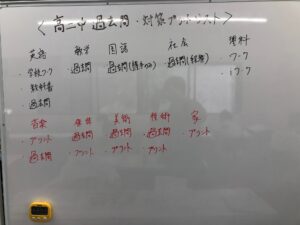 <高二中 過去問・対策プリントリスト>
英語 数学 国語 社会 理科
・学校ワーク ・過去問 ・過去問 ・過去問 ・ワーク
・教科書 ・ワーク
・過去問
音楽 保体 美術 技術 家
・プリント ・過去問 ・過去問 ・過去問 ・プリント
・過去問 ・プリント ・プリント ・プリント